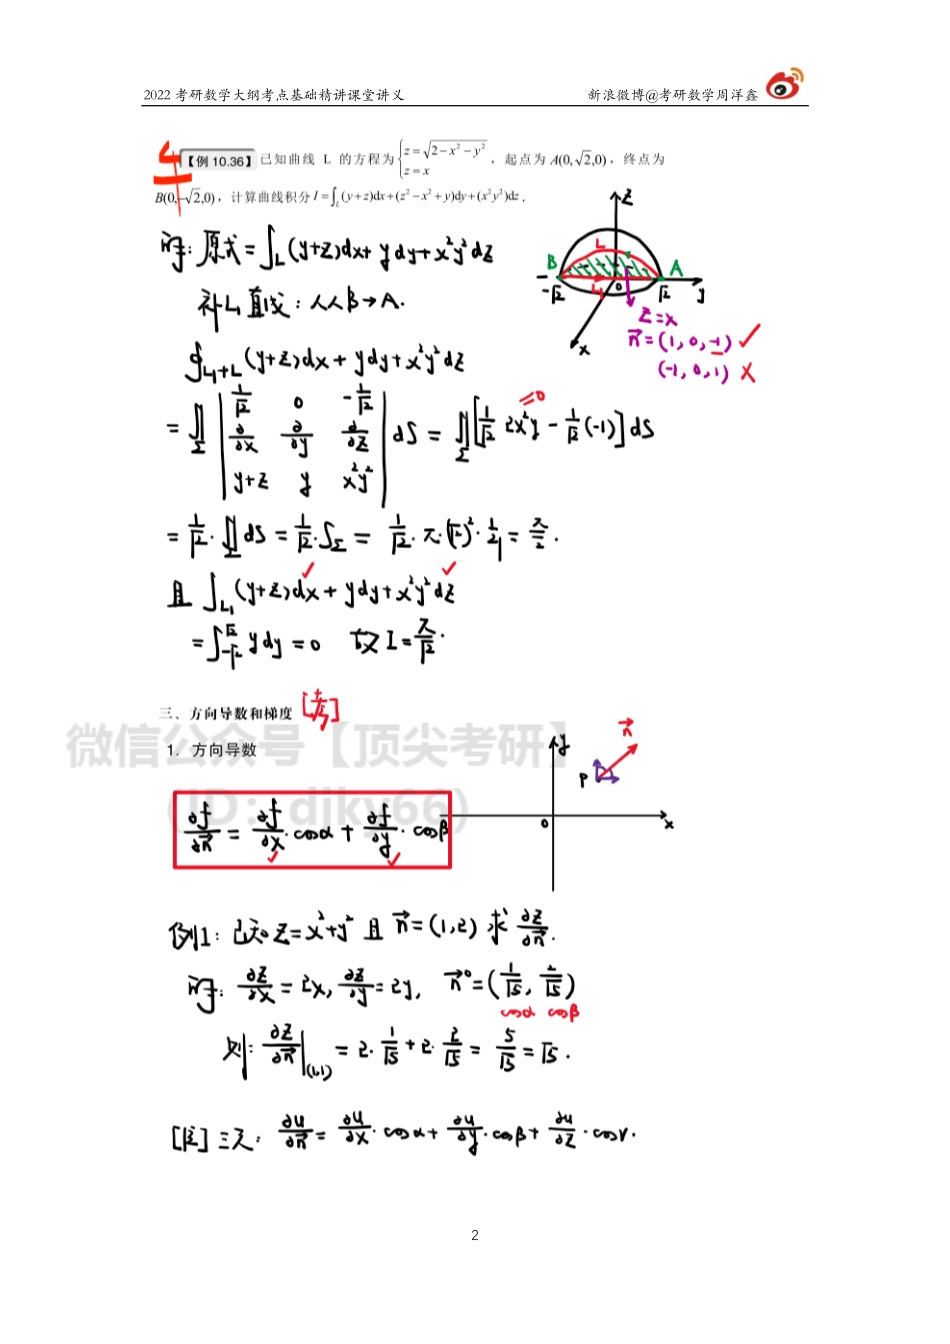 2022 考研数学大纲考点基础精讲课堂讲义 新浪微博@考研数学周洋鑫
【例 10.36】已知曲线 L 的方程为 {z = √(2−x²−y²), z = x ，起点为 A(0, √2,0)，终点为
B(0,−√2,0)，计算曲线积分 I = ∫_L (y+z)dx+(z²−x²+y)dy+(x²y²)dz .
解: 原式=∫_L (y+z)dx+ydy+x²y²dz
补L₁直线: 从B→A.
∮_{L₁+L} (y+z)dx+ydy+x²y²dz
= ∬_Σ | 1/√2 0 -1/√2 ; ∂/∂x ∂/∂y ∂/∂z ; y+z y x²y² | dS = ∬_Σ [1/√2 2x²y - 1/√2 (-1)] dS
=0
= 1/√2 · ∬_Σ dS = 1/√2 · S_Σ = 1/√2 · π·(√2)² · 1/2 = π/√2 .
且 ∫_{L₁} (y+z)dx+ydy+x²y²dz
= ∫_{-√2}^{√2} ydy = 0 故 I = π/√2 .
z
L
B A
-√2 L₁ 0 √2 y
x
z=x
n⃗=(1,0,-1) ✓
(-1,0,1) ×
三、方向导数和梯度 [考]
1. 方向导数
∂f/∂n⃗ = ∂f/∂x · cosα + ∂f/∂y · cosβ
y
n⃗
P
0 x
例1: 已知 z=x²+y² 且 n⃗=(1,2) 求 ∂z/∂n⃗ .
解: ∂z/∂x = 2x, ∂z/∂y = 2y, n⃗°=(1/√5, 2/√5)
cosα cosβ
则: ∂z/∂n⃗ |(1,1) = 2·1/√5 + 2·2/√5 = 5/√5 = √5 .
[注] 三元: ∂u/∂n⃗ = ∂u/∂x · cosα + ∂u/∂y · cosβ + ∂u/∂z · cosγ .
微信公众号【顶尖考研】
(ID: djky66)
2